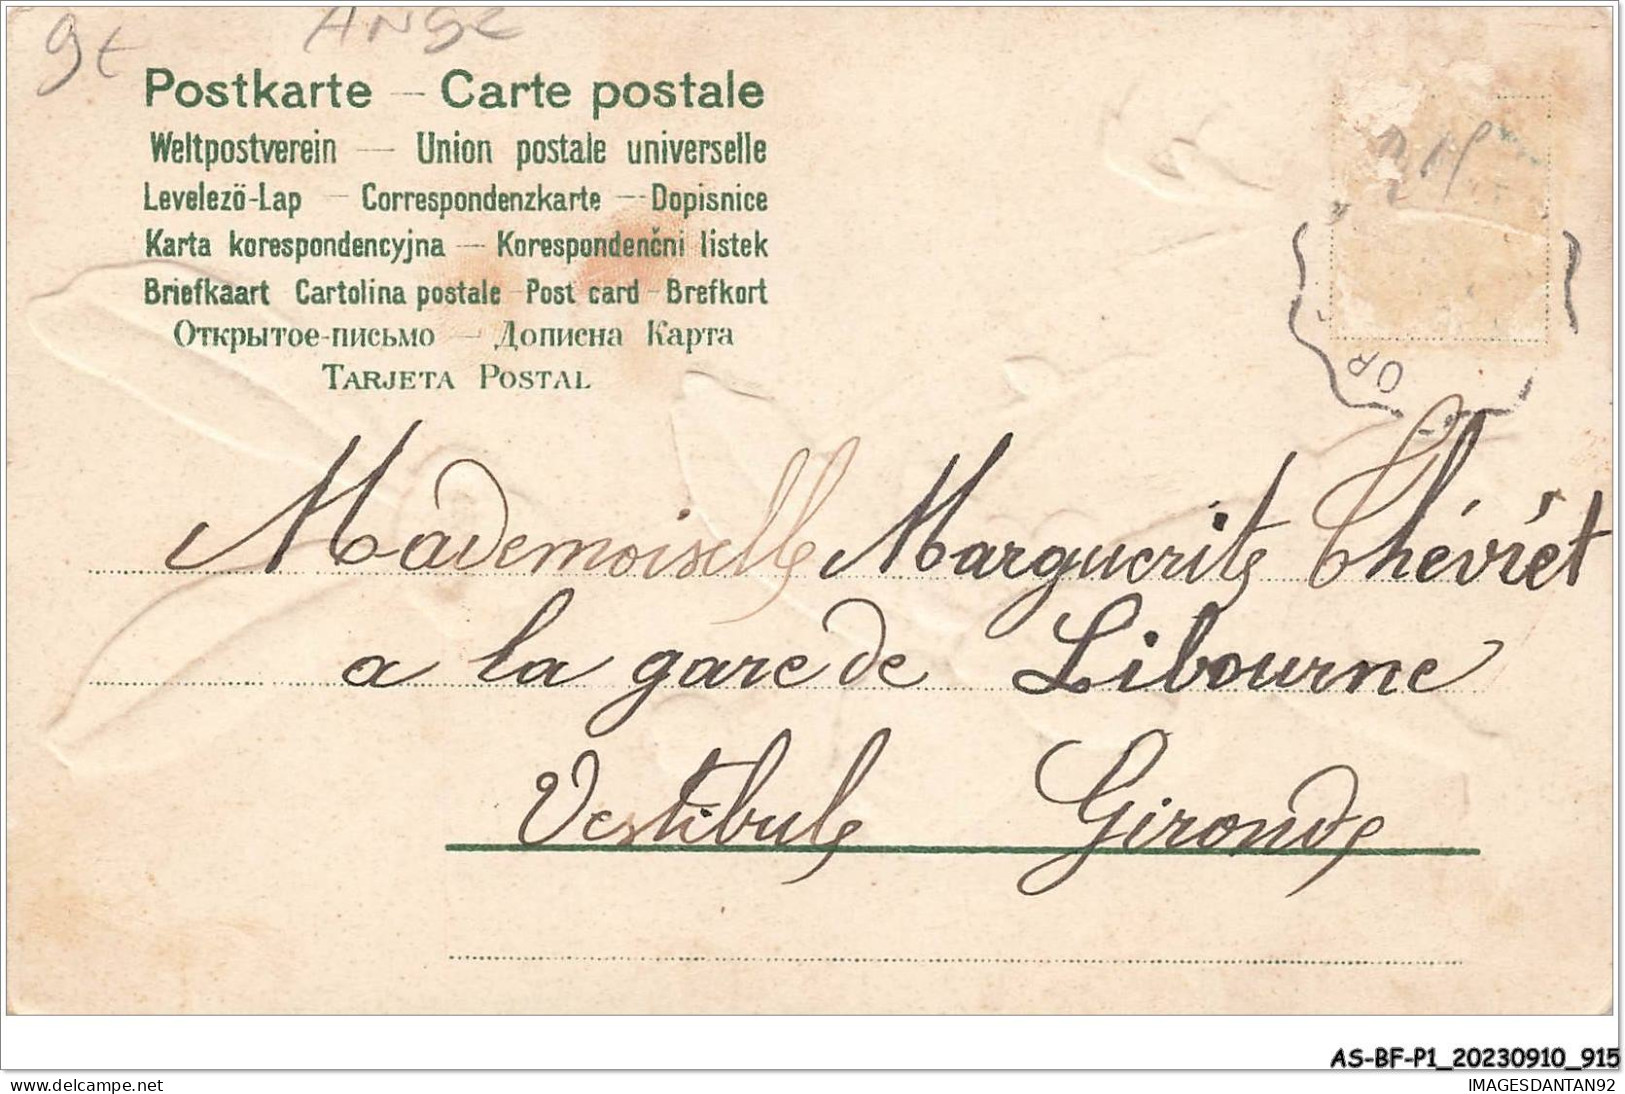 9€ ANGE
Postkarte — Carte postale
Weltpostverein — Union postale universelle
Levelező-Lap — Correspondenzkarte — Dopisnice
Karta korespondencyjna — Korespondenčni listek
Briefkaart Cartolina postale Post card Brefkort
Открытое-письмо — Дописна Карта
TARJETA POSTAL
OR
Mademoiselle Marguerite Chévrêt
a la gare de Libourne
Vestibule Gironde
AS-BF-P1_20230910_915
www.delcampe.net IMAGESDANTAN92